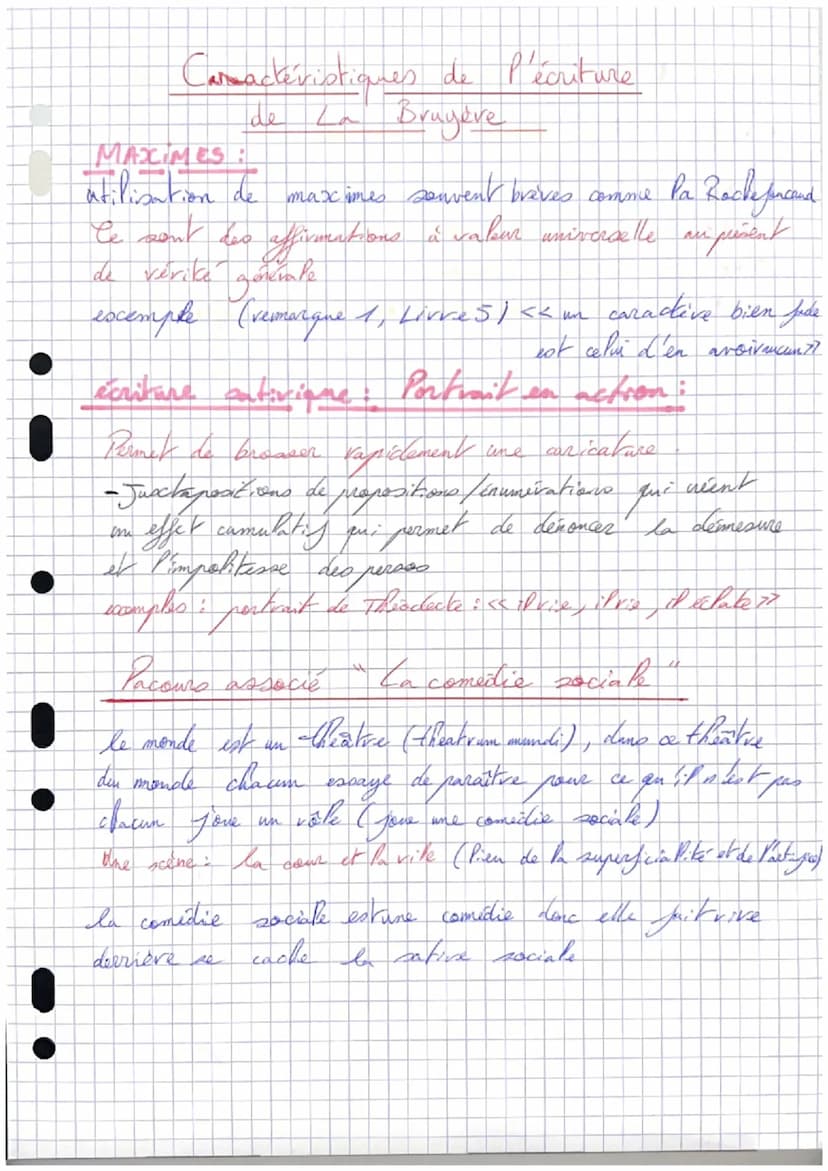 Caractéristiques de l'écriture
de La Bruyère
MAXiMES :
utilisation de maximes souvent brèves comme la Rochefoucaud
Ce sont des affirmations à valeur universelle au présent
de vérité générale
escemple (remarque 1, Livre 5) << un caractère bien fade
est celui d'en avoir aucun >>
écriture satirique : Portrait en action :
Permet de brosser rapidement une caricature.
- Juxtapositions de propositions/énumérations qui créent
un effet cumulatif qui permet de dénoncer la démesure
et l'impolitesse des persos
exemples : portrait de Théodecte : << il crie, il rie, il éclate >>
Pacours associé " La comédie sociale "
le monde est un théâtre (theatrum mundi), dans ce théâtre
du monde chacun essaye de paraître pour ce qu'il n'est pas
chacun joue un rôle (joue une comédie sociale)
Une scène : la cour et la ville (lieu de la superficialité et de
la comédie sociale est une comédie donc elle fait rire
derrière se cache la satire sociale